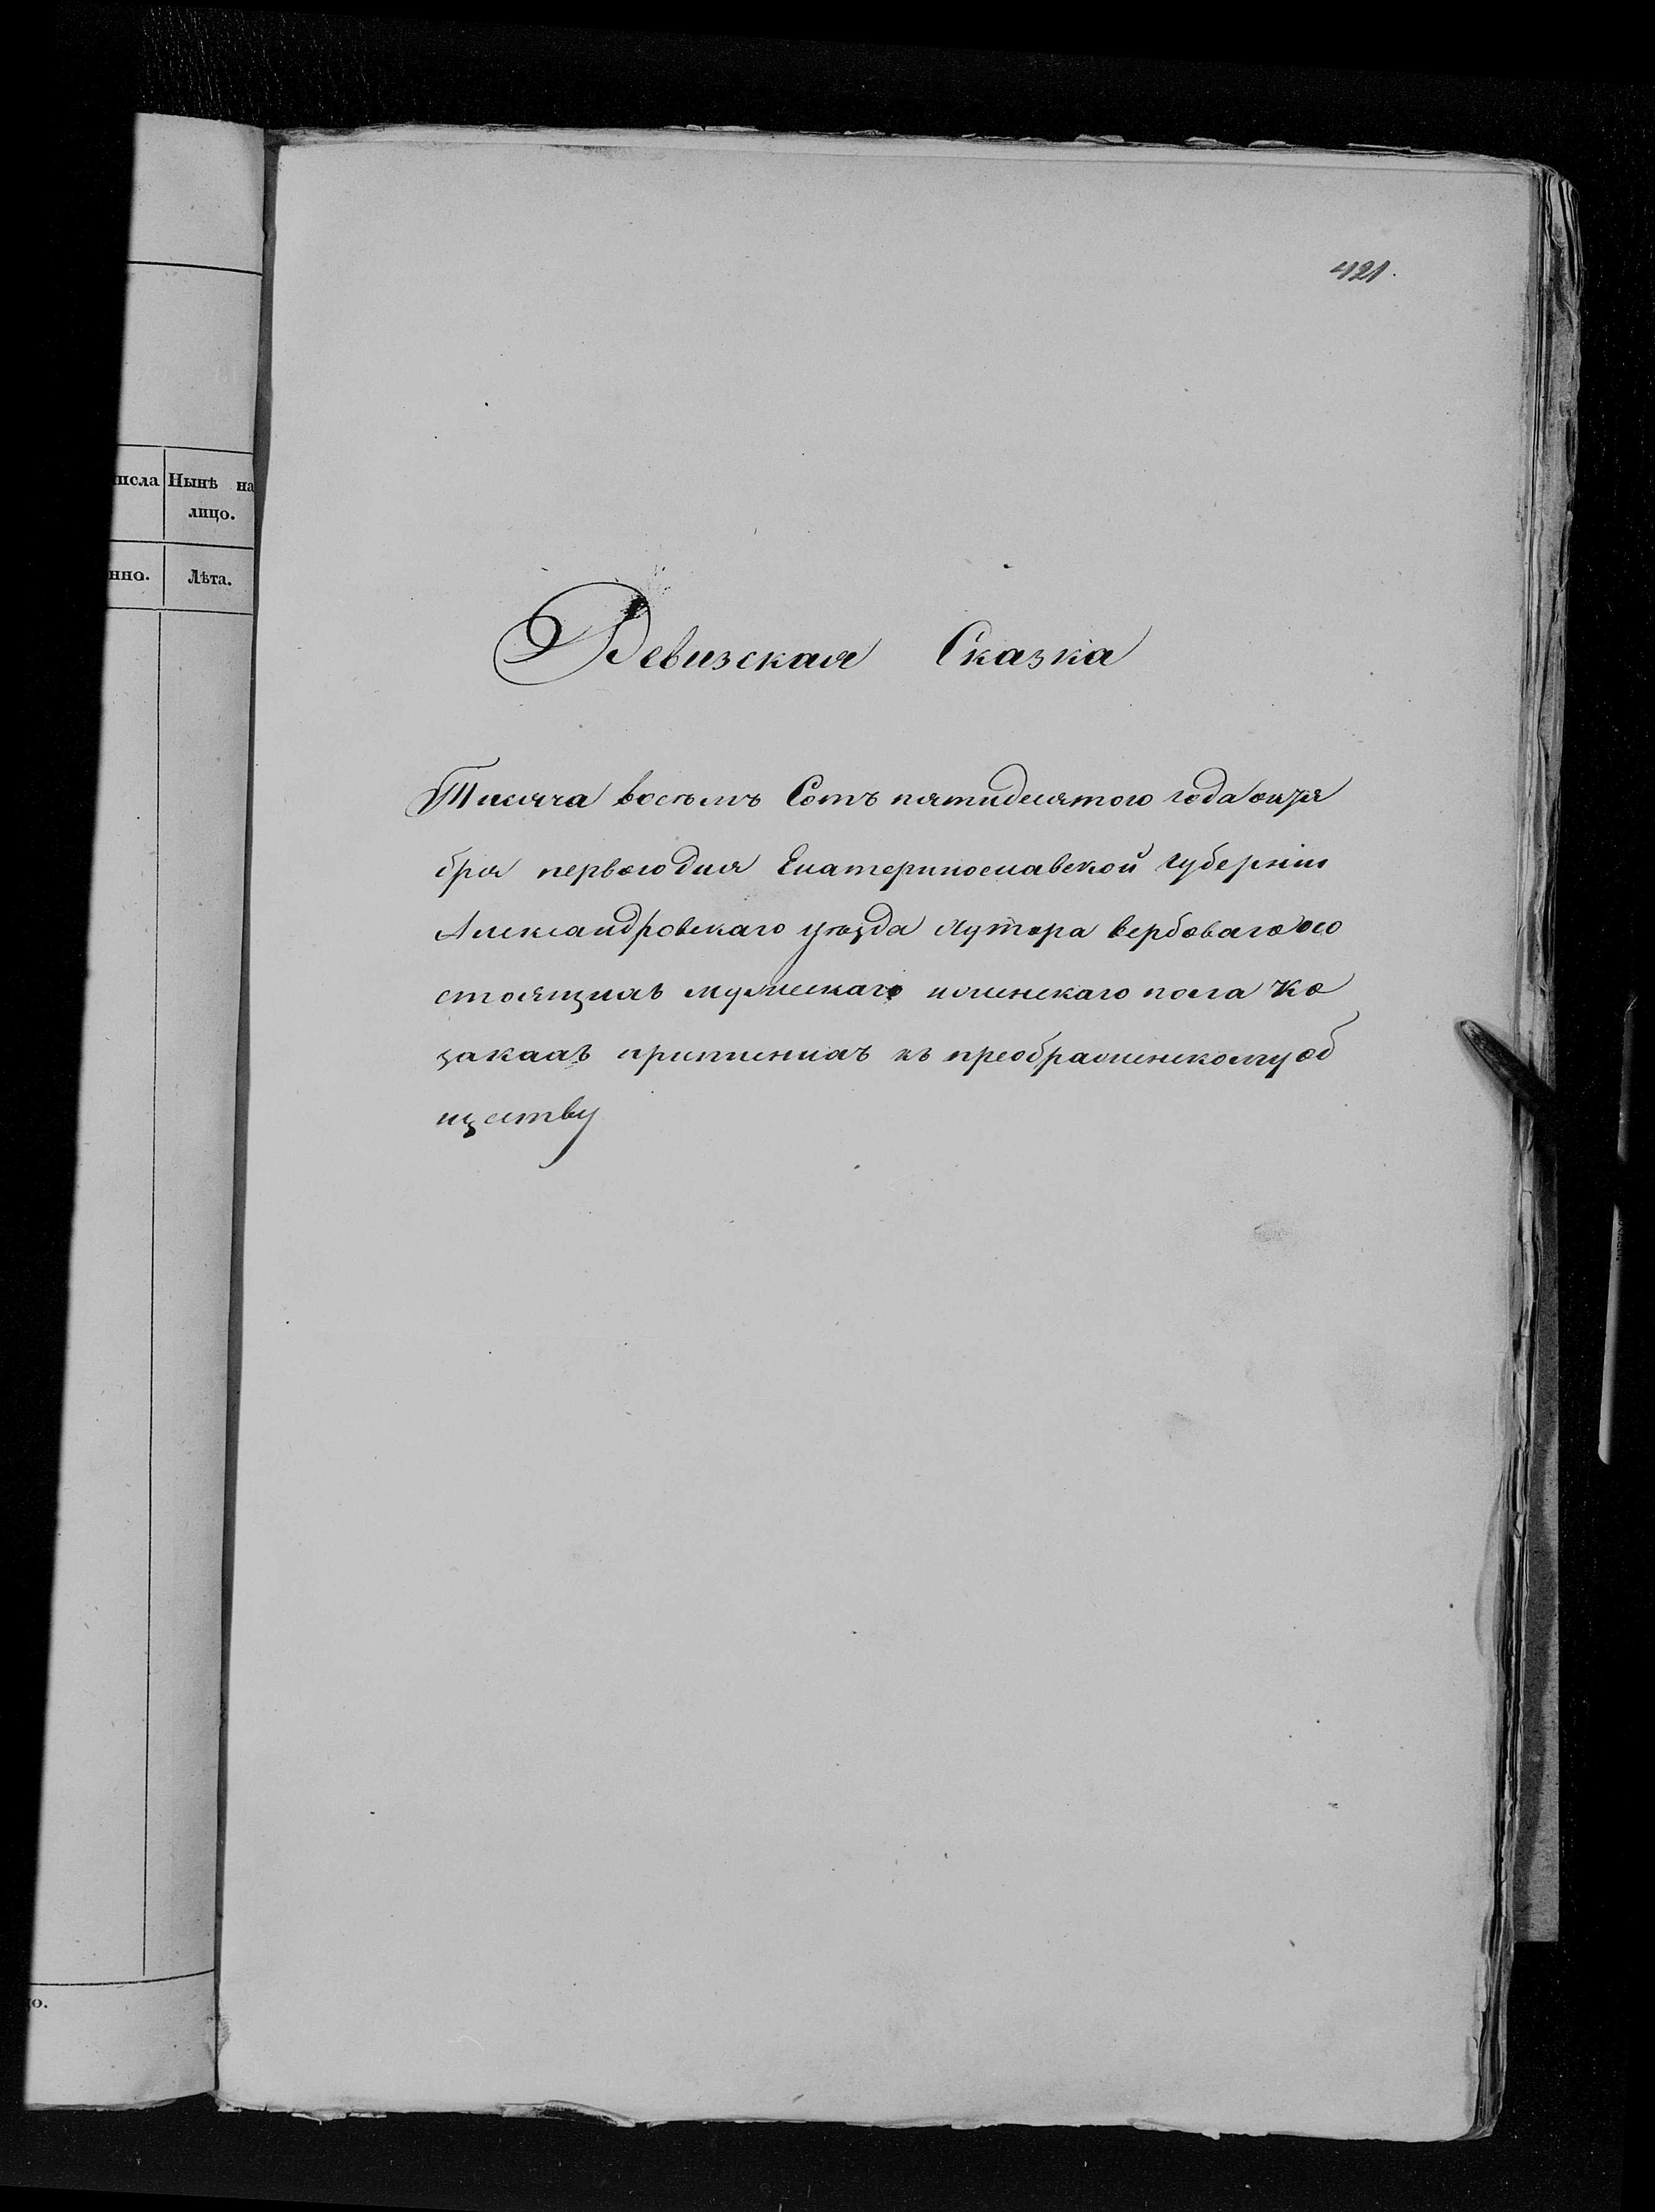 421.
исла Нынѣ на
лицо.
нно. Лѣта.
Ревизская Сказка
Тисяча восѣмъ Сотъ пятидесятого года октя
бря первого дня Екатеринославской губерніи
Александровскаго уѣзда хутора вербоваго о со
стоящихъ мужескаго и женскаго пола ко
закахъ приписнихъ къ преображенскому об
ществу
о.